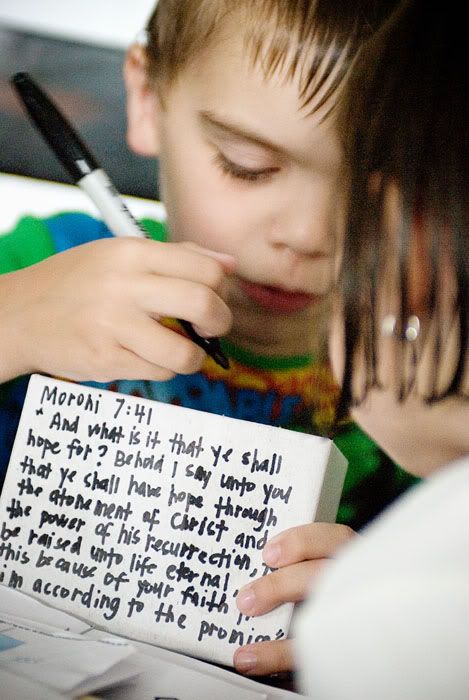 Moroni 7:41
"And what is it that ye shall
hope for? Behold I say unto you
that ye shall have hope through
the atonement of Christ and
the power of his resurrection,
be raised unto life eternal
this because of your faith
im according to the promise"